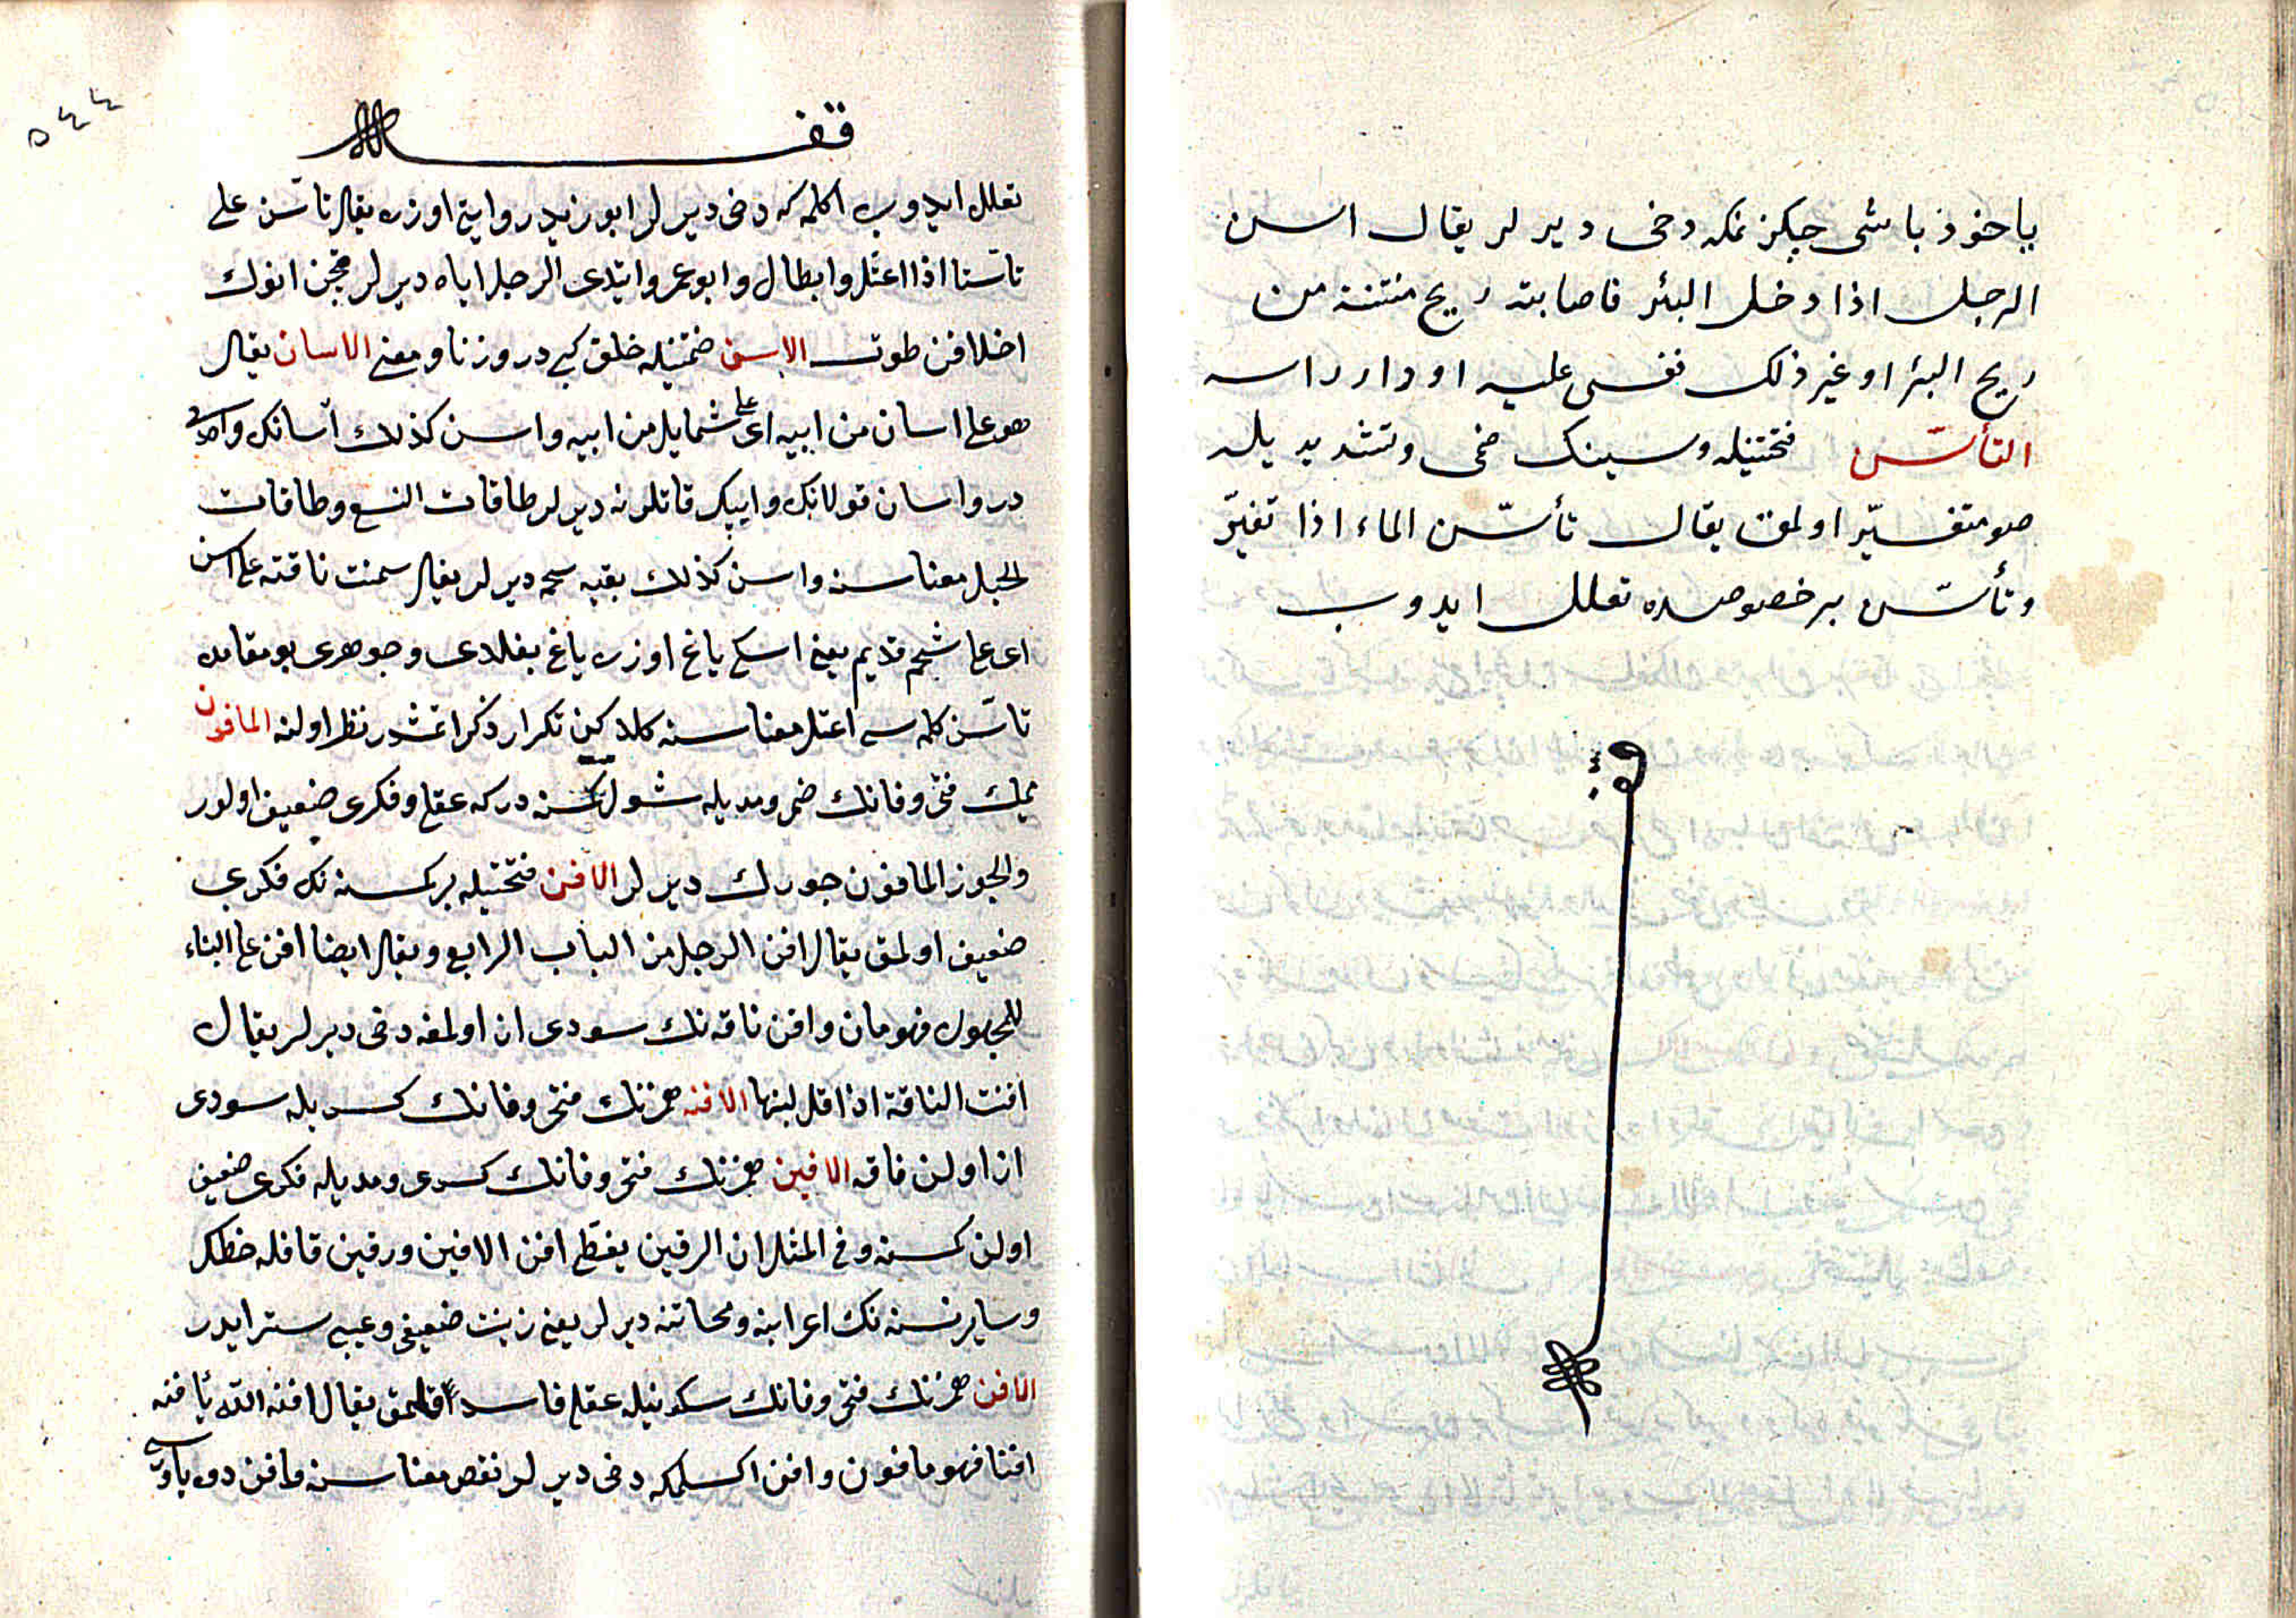 یا خود باشی چکزنمکه دخی دیرلر یقال اسن
الرجل اذا دخل البئر فاصابته ریح منتنة من
ریح البئر او غیر ذلک فغشی علیه او دار راسه
التأسّن فتحتیله و سینک ضمی و تشدیدیله
صو متغیّر اولمق یقال تأسّن الماء اذا تغیّر
و تأسّن بر خصوصده تعلل ایدوب
قف
٥٤٤
تعلل ایدوب اکلمکه دخی دیرلر ابو زید روایتی اوزره یقال تاسّن علی
تاسّنا اذا اعتل وابطال و ابو عمرو ایتدی الرجل اباه دیرلر قچن انوک
اخلاقن طوتسه الاسن ضمتیله خلق کبی در وزنا و معنی الاسان یقال
هو علی اسان من ابیه ای علی شمایل من ابیه واسن کذلک آسانک واحدی
در واسان قولانک و ایپک قاتلرنه دیرلر طاقات النسع و طاقات
الحبل معناسنه واسن کذلک بقیه شحمه دیرلر یقال سمنت ناقته علی اسن
ای علی شحم قدیم یعنی اسکی یاغ اوزره یاغ بغلدی و جوهری بو مقامده
تاسّن کلمه سی اعتل معناسنه کلدکین تکرار ذکر اتمشدر نظر اولنه المافون
میمک فتحی و فانک ضمی و مدیله شول کسنه در که عقلی و فکری ضعیف اولور
والجوز المافون جورک دیرلر الافن فتحتیله بر کسنه نک فکری
ضعیف اولمق یقال افن الرجل من الباب الرابع و یقال ایضا افن علی البناء
للمجهول فهو مافون و افن ناقه نک سودی از اولمغه دخی دیرلر یقال
افنت الناقة اذا قل لبنها الافنه همزنک فتحی و فانک کسریله سودی
از اولن ناقه الافین همزنک فتحی و فانک کسری و مدیله فکری ضعیف
اولن کسنه و فی المثل ان الرقین یغطی افن الافین و رقین قافله
و سایر نسنه نک اعرابنه دیرلر یعنی زینت ضعیفی و عیبی ستر ایدر
الافن همزنک فتحی و فانک سکونیله عقلی فاسد قلمق یقال افنه الله یأفنه
افنا فهو مافون و افن اکسلمکه دخی دیرلر نقص معناسنه و افن دوه یاوروسی